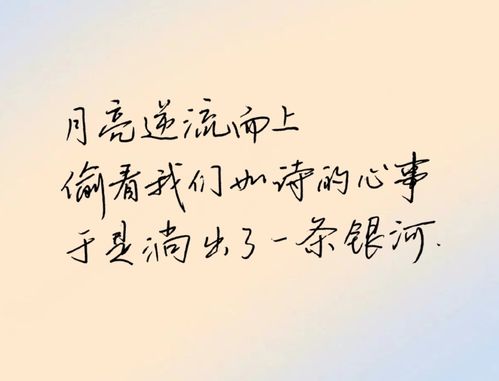 月亮逆流而上
偷看我们如诗的心事
于是淌出了一条银河.